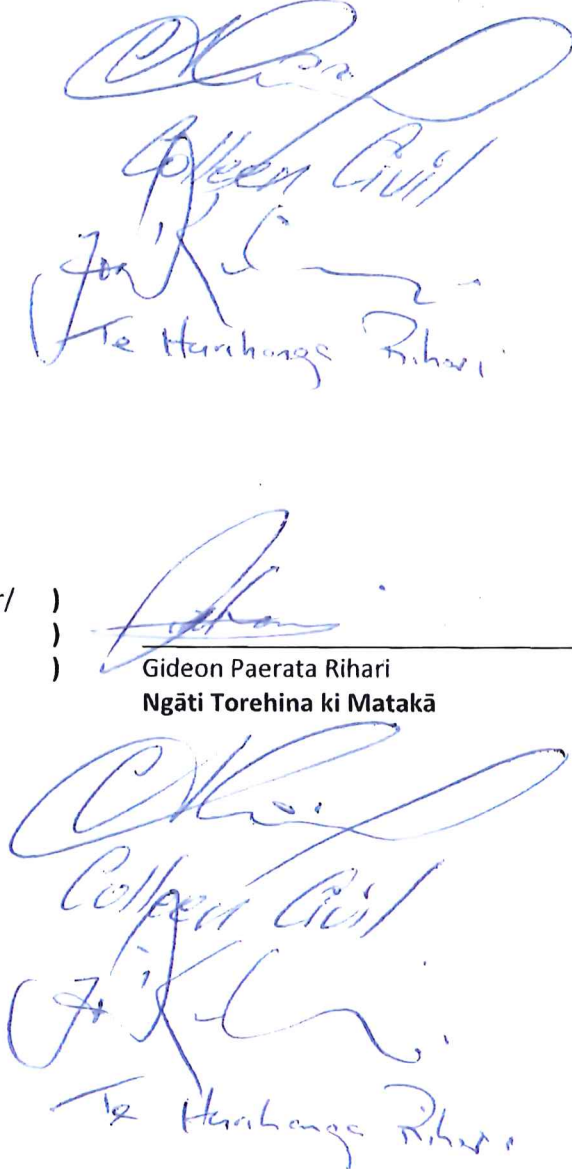 Colleen Civil
Te Hurihanga Rihari
r/ )
)
) Gideon Paerata Rihari
Ngāti Torehina ki Matakā
Colleen Civil
Te Hurihanga Rihari